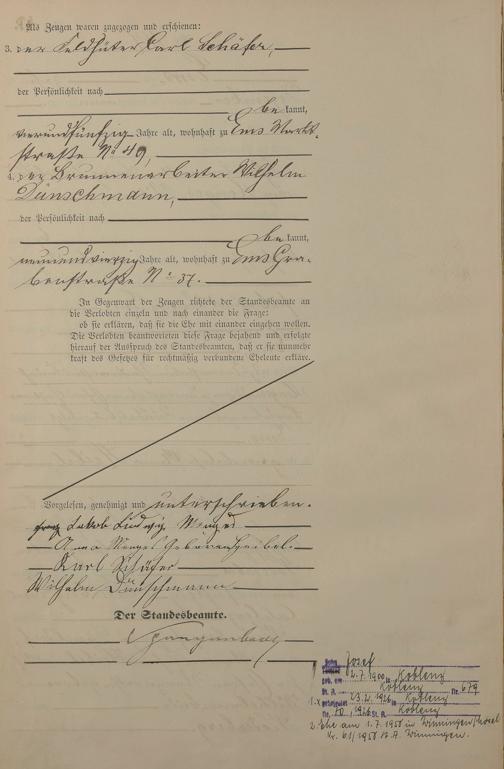 Als Zeugen waren zugezogen und erschienen:
3. der Feldhüter Carl Schäfer,
der Persönlichkeit nach
be kannt,
vierundfünfzig Jahre alt, wohnhaft zu Ems Markt-
straße No 49,
4. der Brunnenarbeiter Wilhelm
Dünschmann,
der Persönlichkeit nach
be kannt,
neunundvierzig Jahre alt, wohnhaft zu Ems Gra-
benstraße No 37.
In Gegenwart der Zeugen richtete der Standesbeamte an
die Verlobten einzeln und nach einander die Frage:
ob sie erklären, daß sie die Ehe mit einander eingehen wollen.
Die Verlobten beantworteten diese Frage bejahend und erfolgte
hierauf der Ausspruch des Standesbeamten, daß er sie nunmehr
kraft des Gesetzes für rechtmäßig verbundene Eheleute erkläre.
Vorgelesen, genehmigt und unterschrieben.
Jakob Ludwig Menges
Anna Menges Geborene
Karl Schäfer
Wilhelm Dünschmann
Der Standesbeamte.
Spangenberg
Josef
geb. am 2.7.1900 in Koblenz
St. A. Koblenz Nr. 679
1.x geheiratet 23.2.1926 in Koblenz
Nr. 70, 1926 St. A. Koblenz
2. Ehe am 1.7.1958 in Winningen/Mosel
Nr. 61/1958 St. A. Winningen.